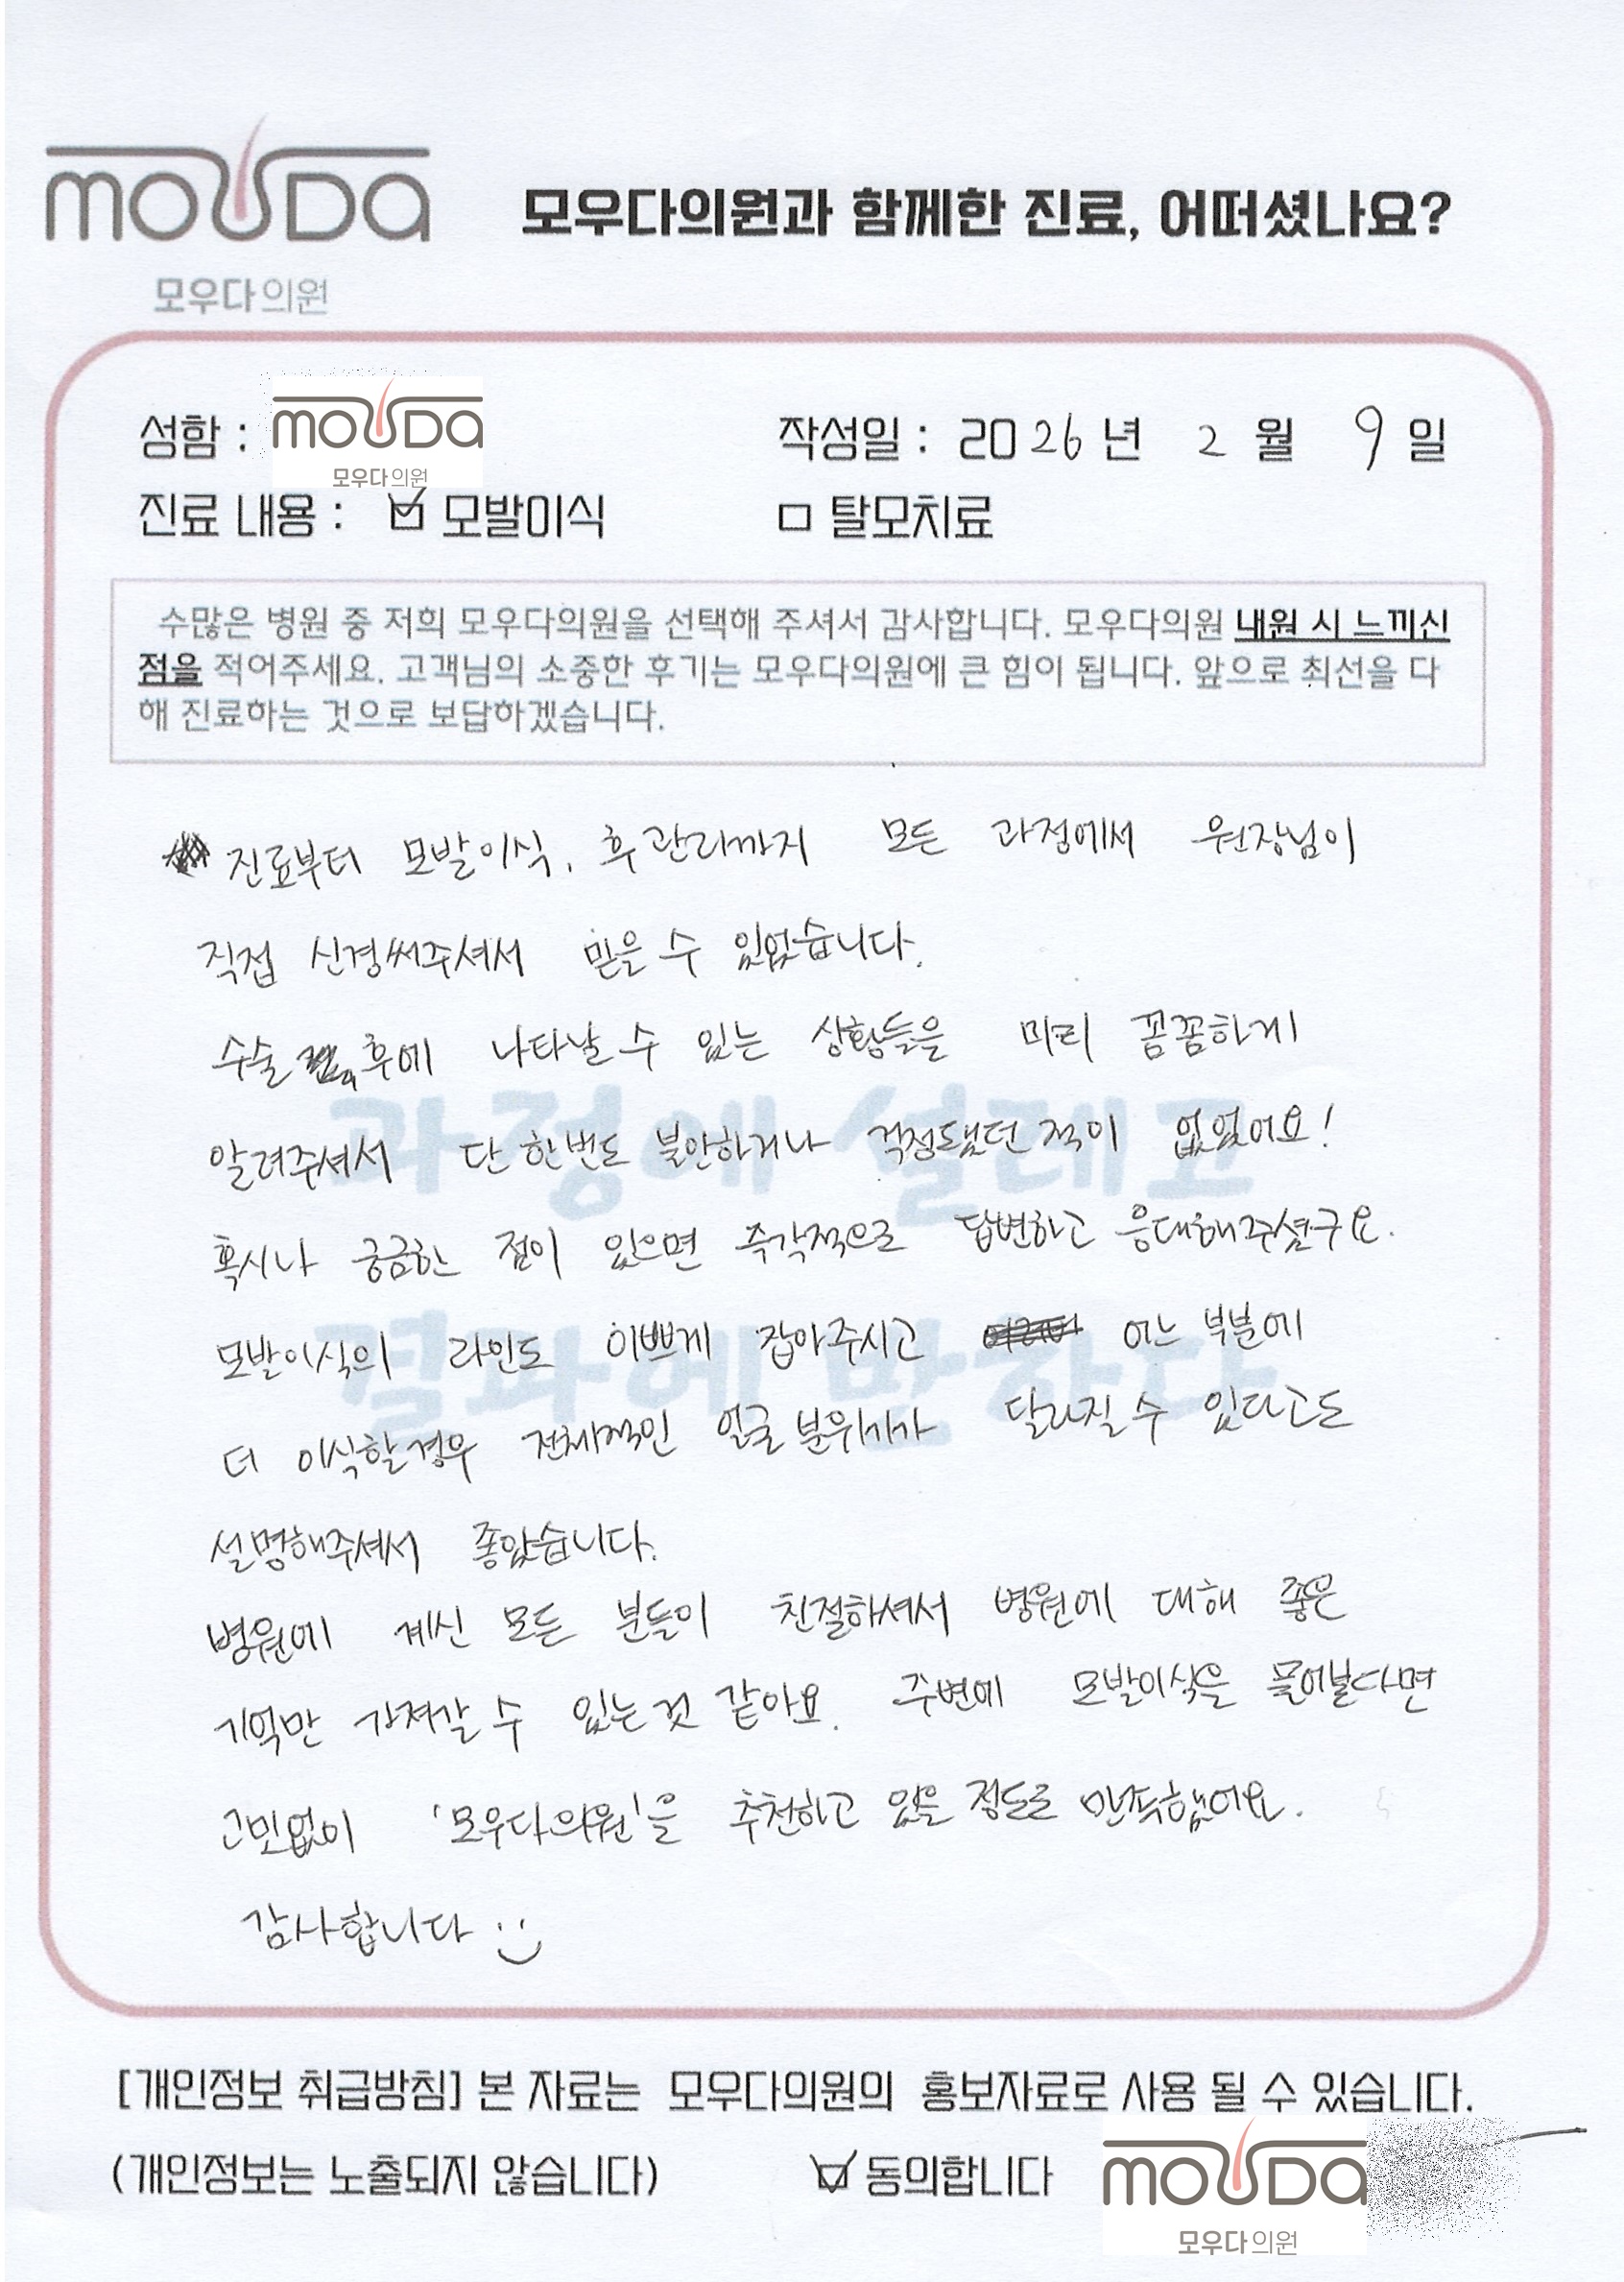 mouDa
모우다의원
모우다의원과 함께한 진료, 어떠셨나요?
성함 : mouDa 모우다의원
작성일 : 2026년 2월 9일
진료 내용 : ☑ 모발이식 □ 탈모치료
수많은 병원 중 저희 모우다의원을 선택해 주셔서 감사합니다. 모우다의원 내원 시 느끼신
점을 적어주세요. 고객님의 소중한 후기는 모우다의원에 큰 힘이 됩니다. 앞으로 최선을 다
해 진료하는 것으로 보답하겠습니다.
진료부터 모발이식, 후관리까지 모든 과정에서 원장님이
직접 신경써주셔서 믿을 수 있었습니다.
수술 후에 나타날 수 있는 상황들을 미리 꼼꼼하게
알려주셔서 단 한번도 불안하거나 걱정됐던 적이 없었어요!
혹시나 궁금한 점이 있으면 즉각적으로 답변하고 응대해주셨구요.
모발이식의 라인도 이쁘게 잡아주시고 어느 부분에
더 이식할경우 전체적인 얼굴 분위기가 달라질 수 있다고도
설명해주셔서 좋았습니다.
병원에 계신 모든 분들이 친절하셔서 병원에 대해 좋은
기억만 가져갈 수 있는것 같아요. 주변에 모발이식을 물어본다면
고민없이 '모우다의원'을 추천하고 있을 정도로 만족했어요.
감사합니다
과정에 설레고
결과에 반하다
[개인정보 취급방침] 본 자료는 모우다의원의 홍보자료로 사용 될 수 있습니다.
(개인정보는 노출되지 않습니다) ☑ 동의합니다
mouDa
모우다의원